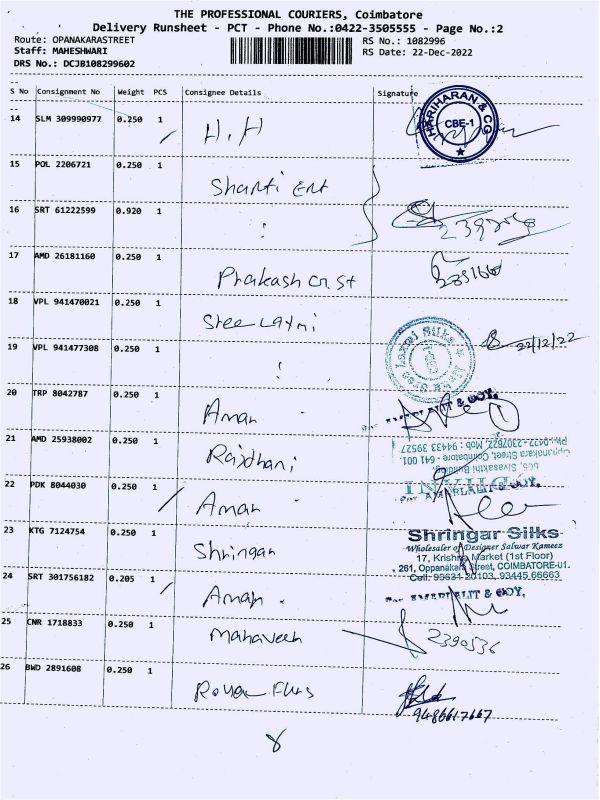 THE PROFESSIONAL COURIERS, Coimbatore
Delivery Runsheet - PCT - Phone No.:0422-3505555 - Page No.:2
Route: OPANAKARASTREET
RS No.: 1082996
Staff: MAHESHWARI
RS Date: 22-Dec-2022
DRS No.: DCJB108299602
S No Consignment No Weight PCS Consignee Details Signature
14 SLM 309990977 0.250 1 H.H
HARIHARAN & CO
CBE-1
15 POL 2206721 0.250 1 Shanti Ent
16 SRT 61222599 0.920 1
17 AMD 26181160 0.250 1 Prakash
18 VPL 941470021 0.250 1 Sree Laxmi
22/12/22
19 VPL 941477308 0.250 1
Laxmi Silks
20 TRP 8042787 0.250 1 Aman
21 AMD 25938002 0.250 1 Rajdhani
Ph: 0422 - 2307822, Mob : 94433 39527
Oppanakara Street, Coimbatore - 641 001.
Sivasakthi Building,
22 PDK 8044030 0.250 1 Aman
23 KTG 7124754 0.250 1 Shringar
Shringar Silks
Wholesaler of Designer Salwar Kameez
17, Krishna Market (1st Floor)
261, Oppanakara Street, COIMBATORE-U1.
Cell: 93631 20103, 93445 66663
24 SRT 301756182 0.205 1 Aman
25 CNR 1718833 0.250 1 Mahaveer
2390536
26 BWD 2891608 0.250 1
9486617667
8